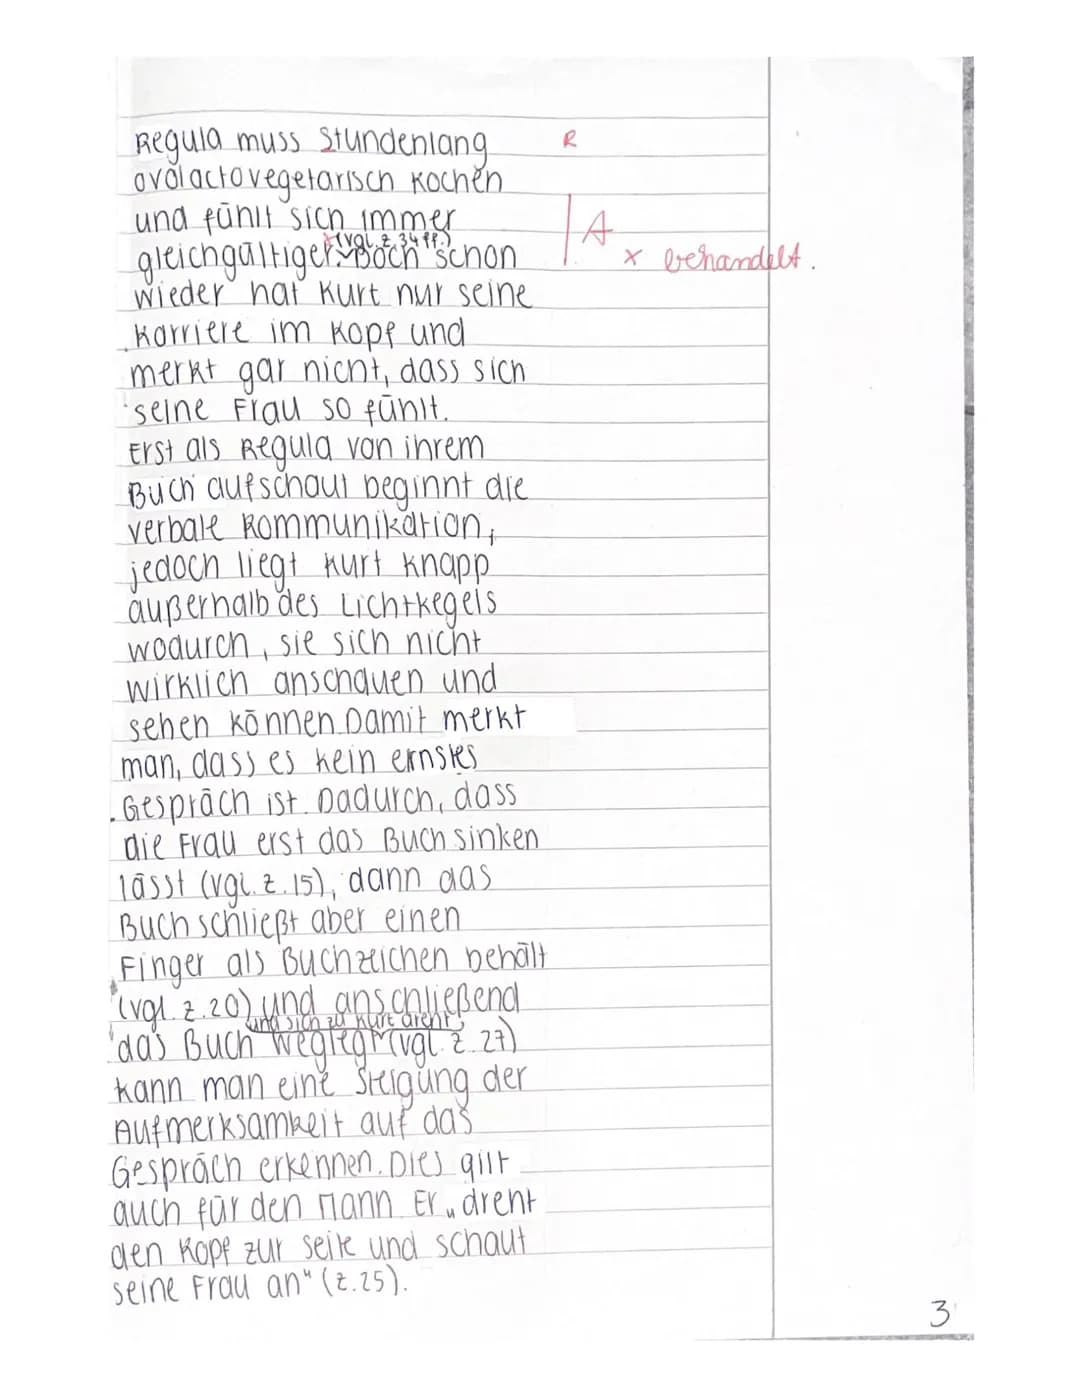 Regula muss Stundenlang R
ovolactovegetarisch kochen
und fühlt sich immer A
gleichgültiger x (vgl. z. 34 ff.). Doch schon x behandelt.
wieder hat Kurt nur seine
Karriere im Kopf und
merkt gar nicht, dass sich
seine Frau so fühlt.
Erst als Regula von ihrem
Buch aufschaut beginnt die
verbale Kommunikation,
jedoch liegt Kurt knapp
außerhalb des Lichtkegels
wodurch, sie sich nicht
wirklich anschauen und
sehen können. Damit merkt
man, dass es kein ernstes
Gespräch ist. Dadurch, dass
die Frau erst das Buch sinken
lässt (vgl. z. 15), dann das
Buch schließt aber einen
Finger als Buchzeichen behält
(vgl. z. 20) und anschließend
und sich zu Kurt dreht
das Buch weglegt (vgl. z. 27)
kann man eine Steigung der
Aufmerksamkeit auf das
Gespräch erkennen. Dies gilt
auch für den Mann. Er „dreht
den Kopf zur Seite und schaut
seine Frau an" (z. 25).
3